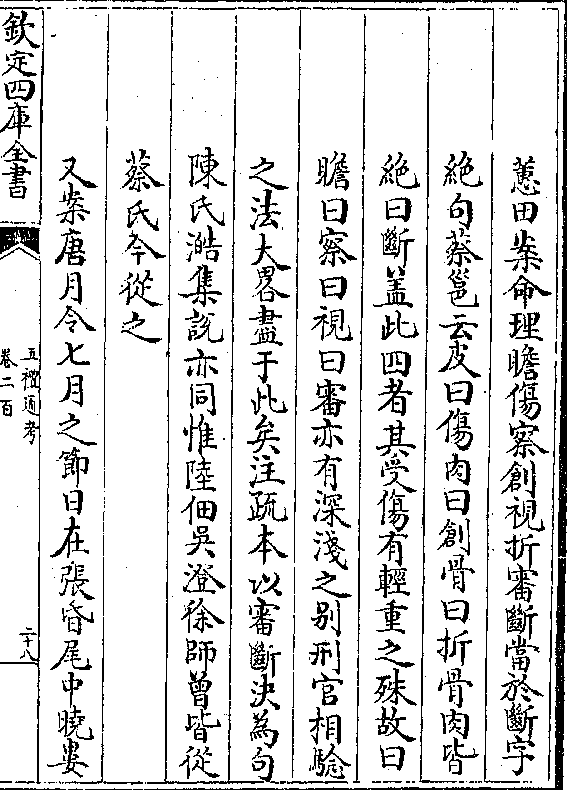 蕙田案命理瞻傷察創視折審斷當於斷字
絶句蔡邕云皮曰傷肉曰創骨曰折骨肉皆
絶曰斷盖此四者其受傷有輕重之殊故曰
瞻曰察曰視曰審亦有深淺之别刑官相驗
之法大畧盡于此矣注疏本以審斷決為句
陳氏澔集說亦同惟陸佃吳澄徐師曾皆從
蔡氏今從之
又案唐月令七月之節日在張昏尾中曉婁
欽定四庫全書
五禮通考
卷二百
二十八